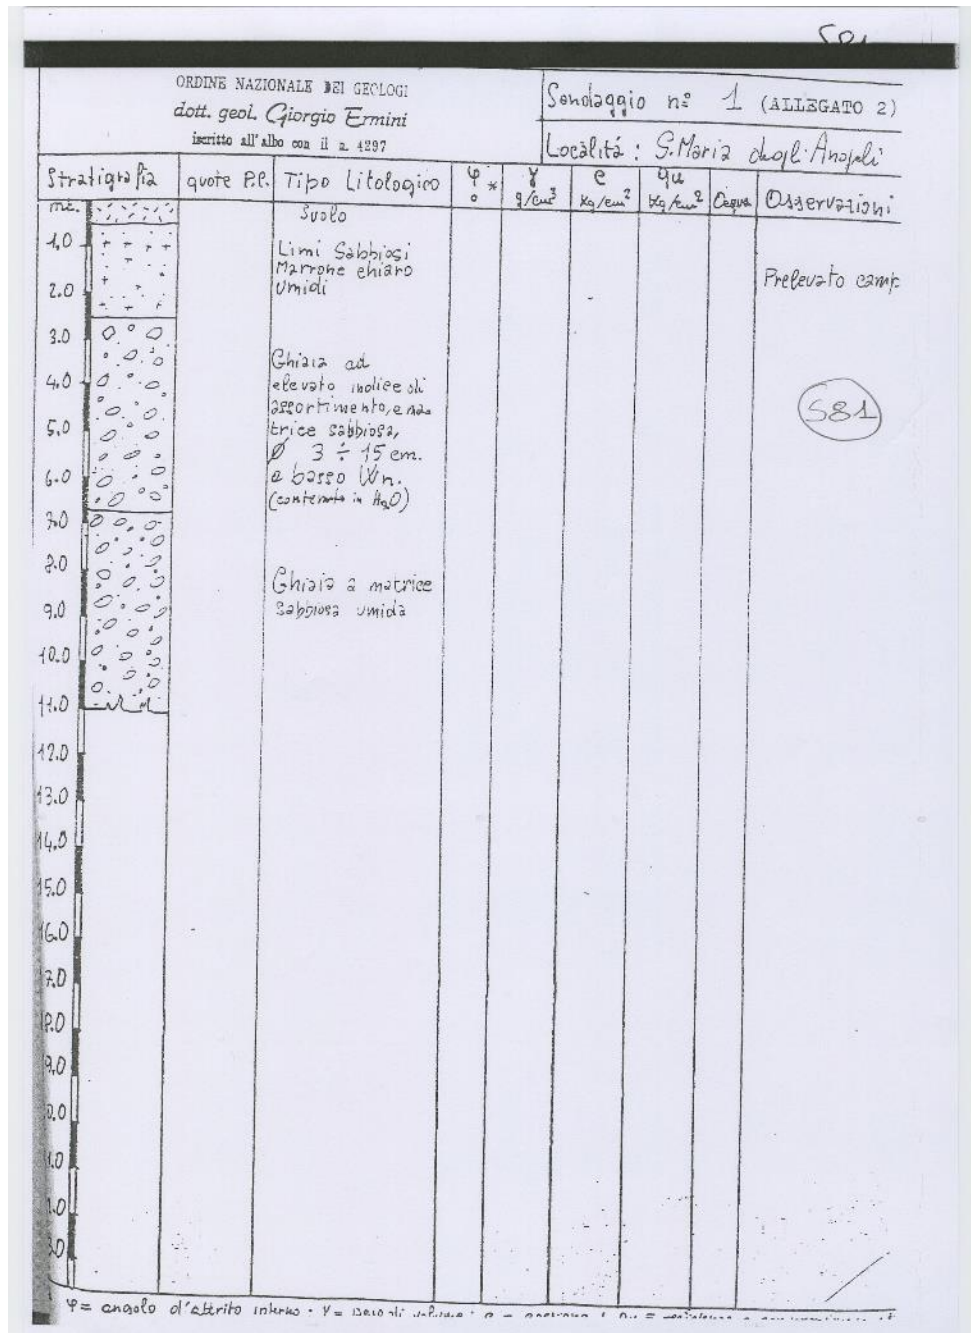 S81
ORDINE NAZIONALE DEI GEOLOGI
dott. geol. Giorgio Ermini
iscritto all'albo con il n. 4297
Sondaggio n° 1 (ALLEGATO 2)
Località: S. Maria degli Angeli
Stratigrafia quote P.C. Tipo Litologico φ * ° γ g/cm³ c Kg/cm² qu Kg/cm² Osservazioni
mt. Suolo
1,0
Limi Sabbiosi
Marrone chiaro
umidi
Prelevato camp
2.0
3.0
Ghiaia ad
4,0 elevato indice di
assortimento, e ma-
5,0 trice sabbiosa,
Ø 3 ÷ 15 cm.
6.0 a basso Wn.
(contenuto in H2O)
S81
7.0
8.0
Ghiaia a matrice
9.0 sabbiosa umida
10.0
11.0
12.0
13.0
14.0
15.0
16.0
φ = angolo d'attrito interno · γ = peso di volume